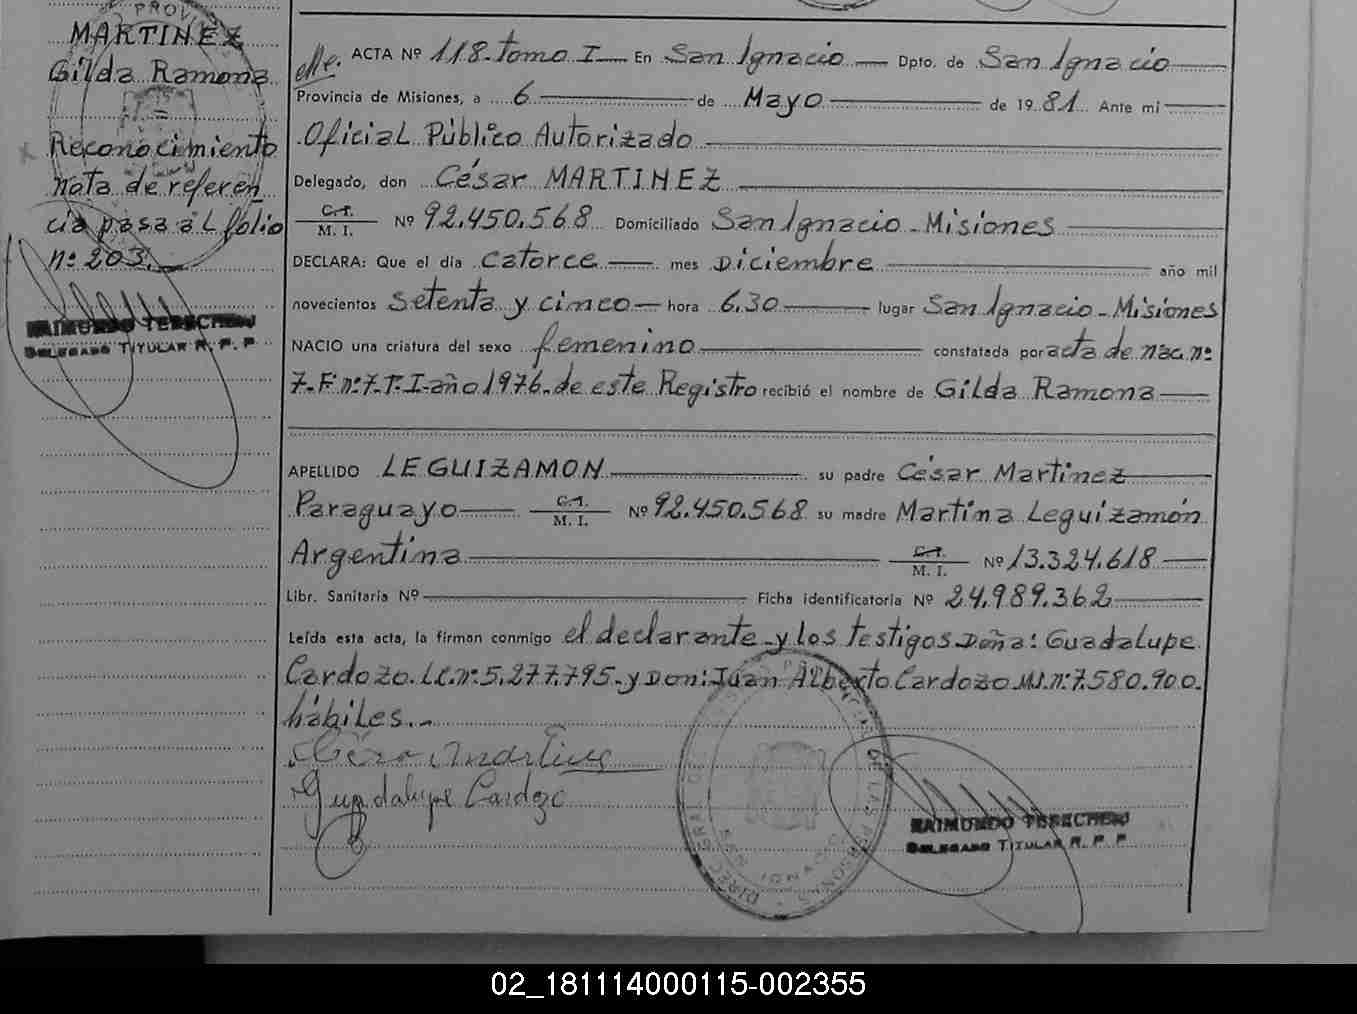 MARTINEZ
Gilda Ramona
Reconocimiento
nota de referen
cia pasa al fólio
nº 203.
RAIMUNDO TERECHENJ
DELEGADO TITULAR R. P. P
ACTA Nº 118. tomo I En San Ignacio Dpto. de San Ignacio
Provincia de Misiones, a 6 de Mayo de 1981. Ante mi
Oficial Público Autorizado
Delegado, don César MARTINEZ
C. I. / M. I. Nº 92.450.568 Domiciliado San Ignacio - Misiones
DECLARA: Que el día catorce mes Diciembre año mil
novecientos setenta y cinco hora 6,30 lugar San Ignacio - Misiones
NACIO una criatura del sexo femenino constatada por acta de nac. nº
7. F. nº 7. T. I- año 1976. de este Registro recibió el nombre de Gilda Ramona
APELLIDO LEGUIZAMON su padre César Martinez
Paraguayo C. I. / M. I. Nº 92.450.568 su madre Martina Leguizamón
Argentina C. I. / M. I. Nº 13.324.618
Libr. Sanitaria Nº Ficha identificatoria Nº 24.989.362
Leída esta acta, la firman conmigo el declarante - y los testigos Doña: Guadalupe
Cardozo. L.C. nº 5.277.795 - y Don: Juan Alberto Cardozo M.I. nº 7.580.900.
hábiles.-
Guadalupe Cardozo
DE LAS PERSONAS
RAIMUNDO TERECHENJ
DELEGADO TITULAR R. P. P
02_181114000115-002355